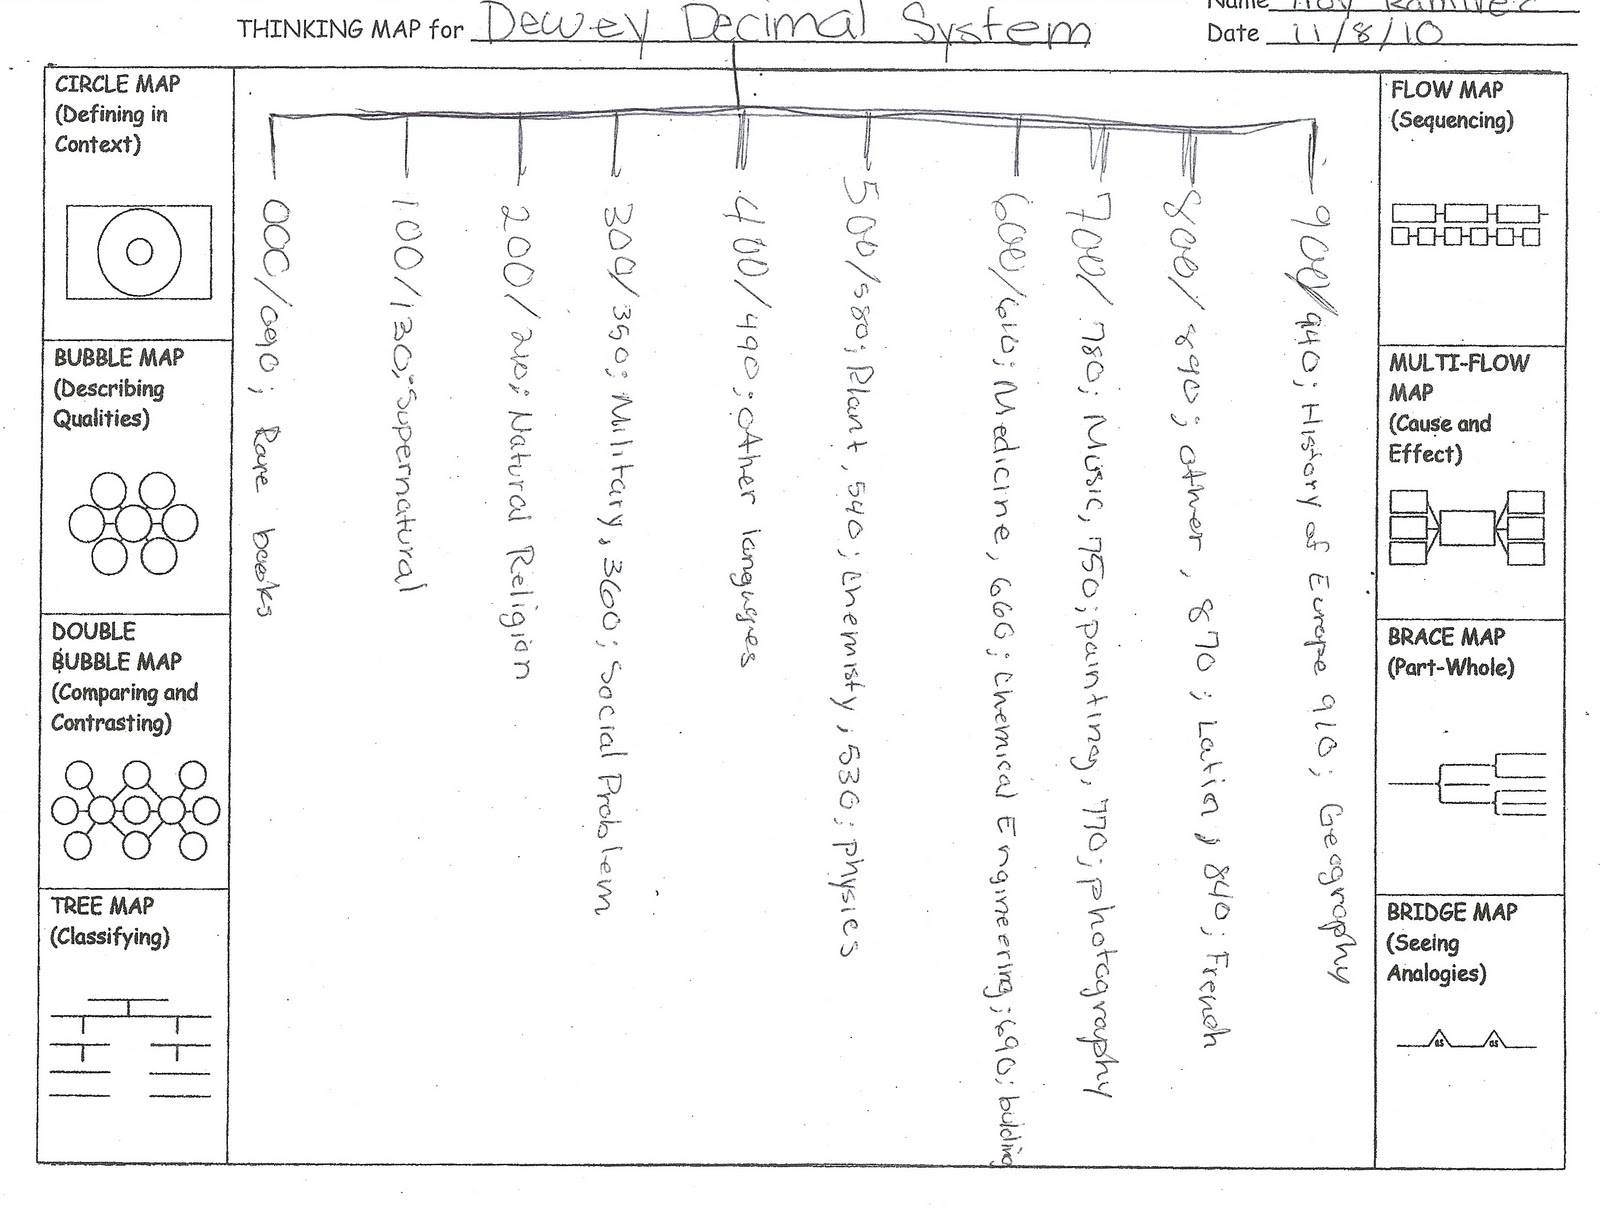 Name Roy Ramirez
THINKING MAP for Dewey Decimal System
Date 11/8/10
CIRCLE MAP
(Defining in
Context)
BUBBLE MAP
(Describing
Qualities)
DOUBLE
BUBBLE MAP
(Comparing and
Contrasting)
TREE MAP
(Classifying)
000/090; Rare books
100/130; Supernatural
200/210; Natural Religion
300/350; Military, 360; Social Problem
400/490; other languges
500/580; Plant, 540; Chemisty, 530; physics
600/610; Medicine, 660; Chemical Engineering; 690; bulding
700/780; Music, 750; painting, 770; photography
800/890; other, 870; Latin, 840; French
900/940; History of Europe 910; Geography
FLOW MAP
(Sequencing)
MULTI-FLOW
MAP
(Cause and
Effect)
BRACE MAP
(Part-Whole)
BRIDGE MAP
(Seeing
Analogies)
as as